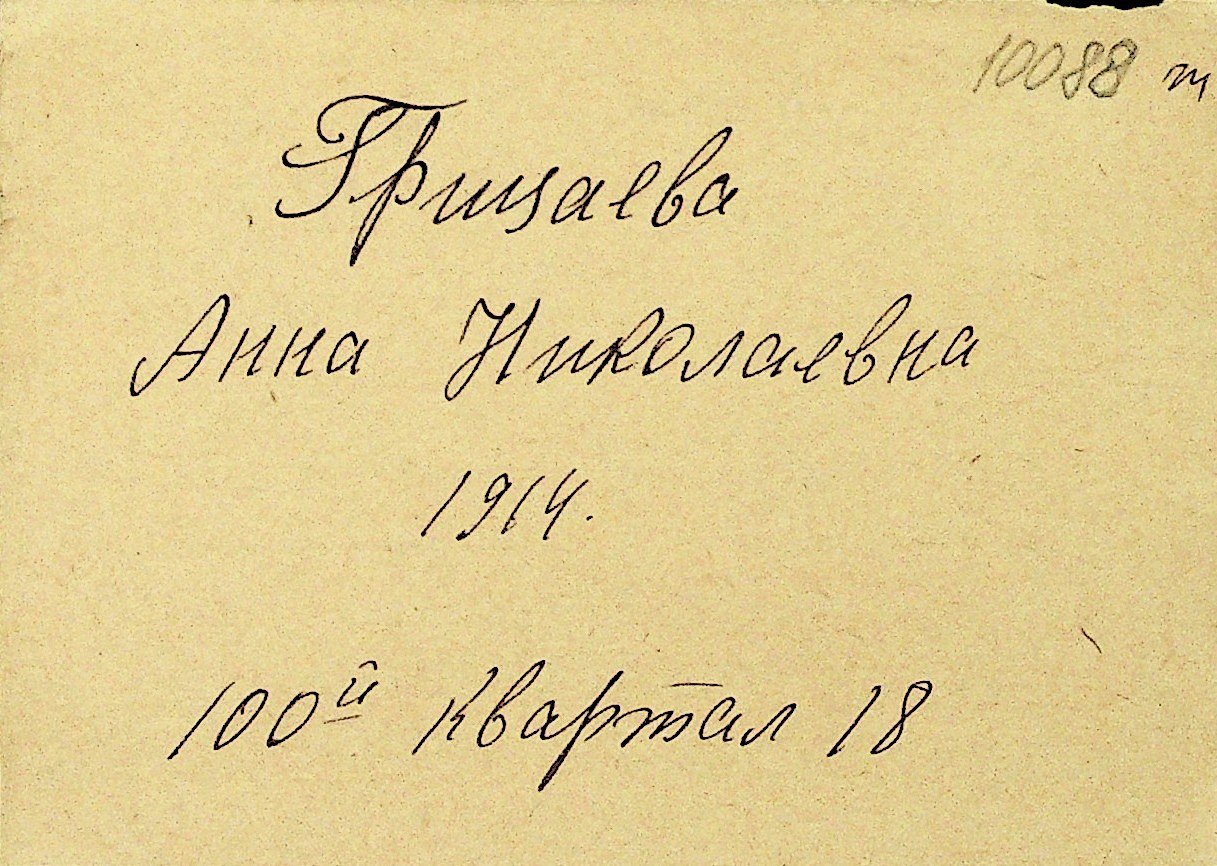 10088
Грицаева
Анна Николаевна
1914.
100й квартал 18